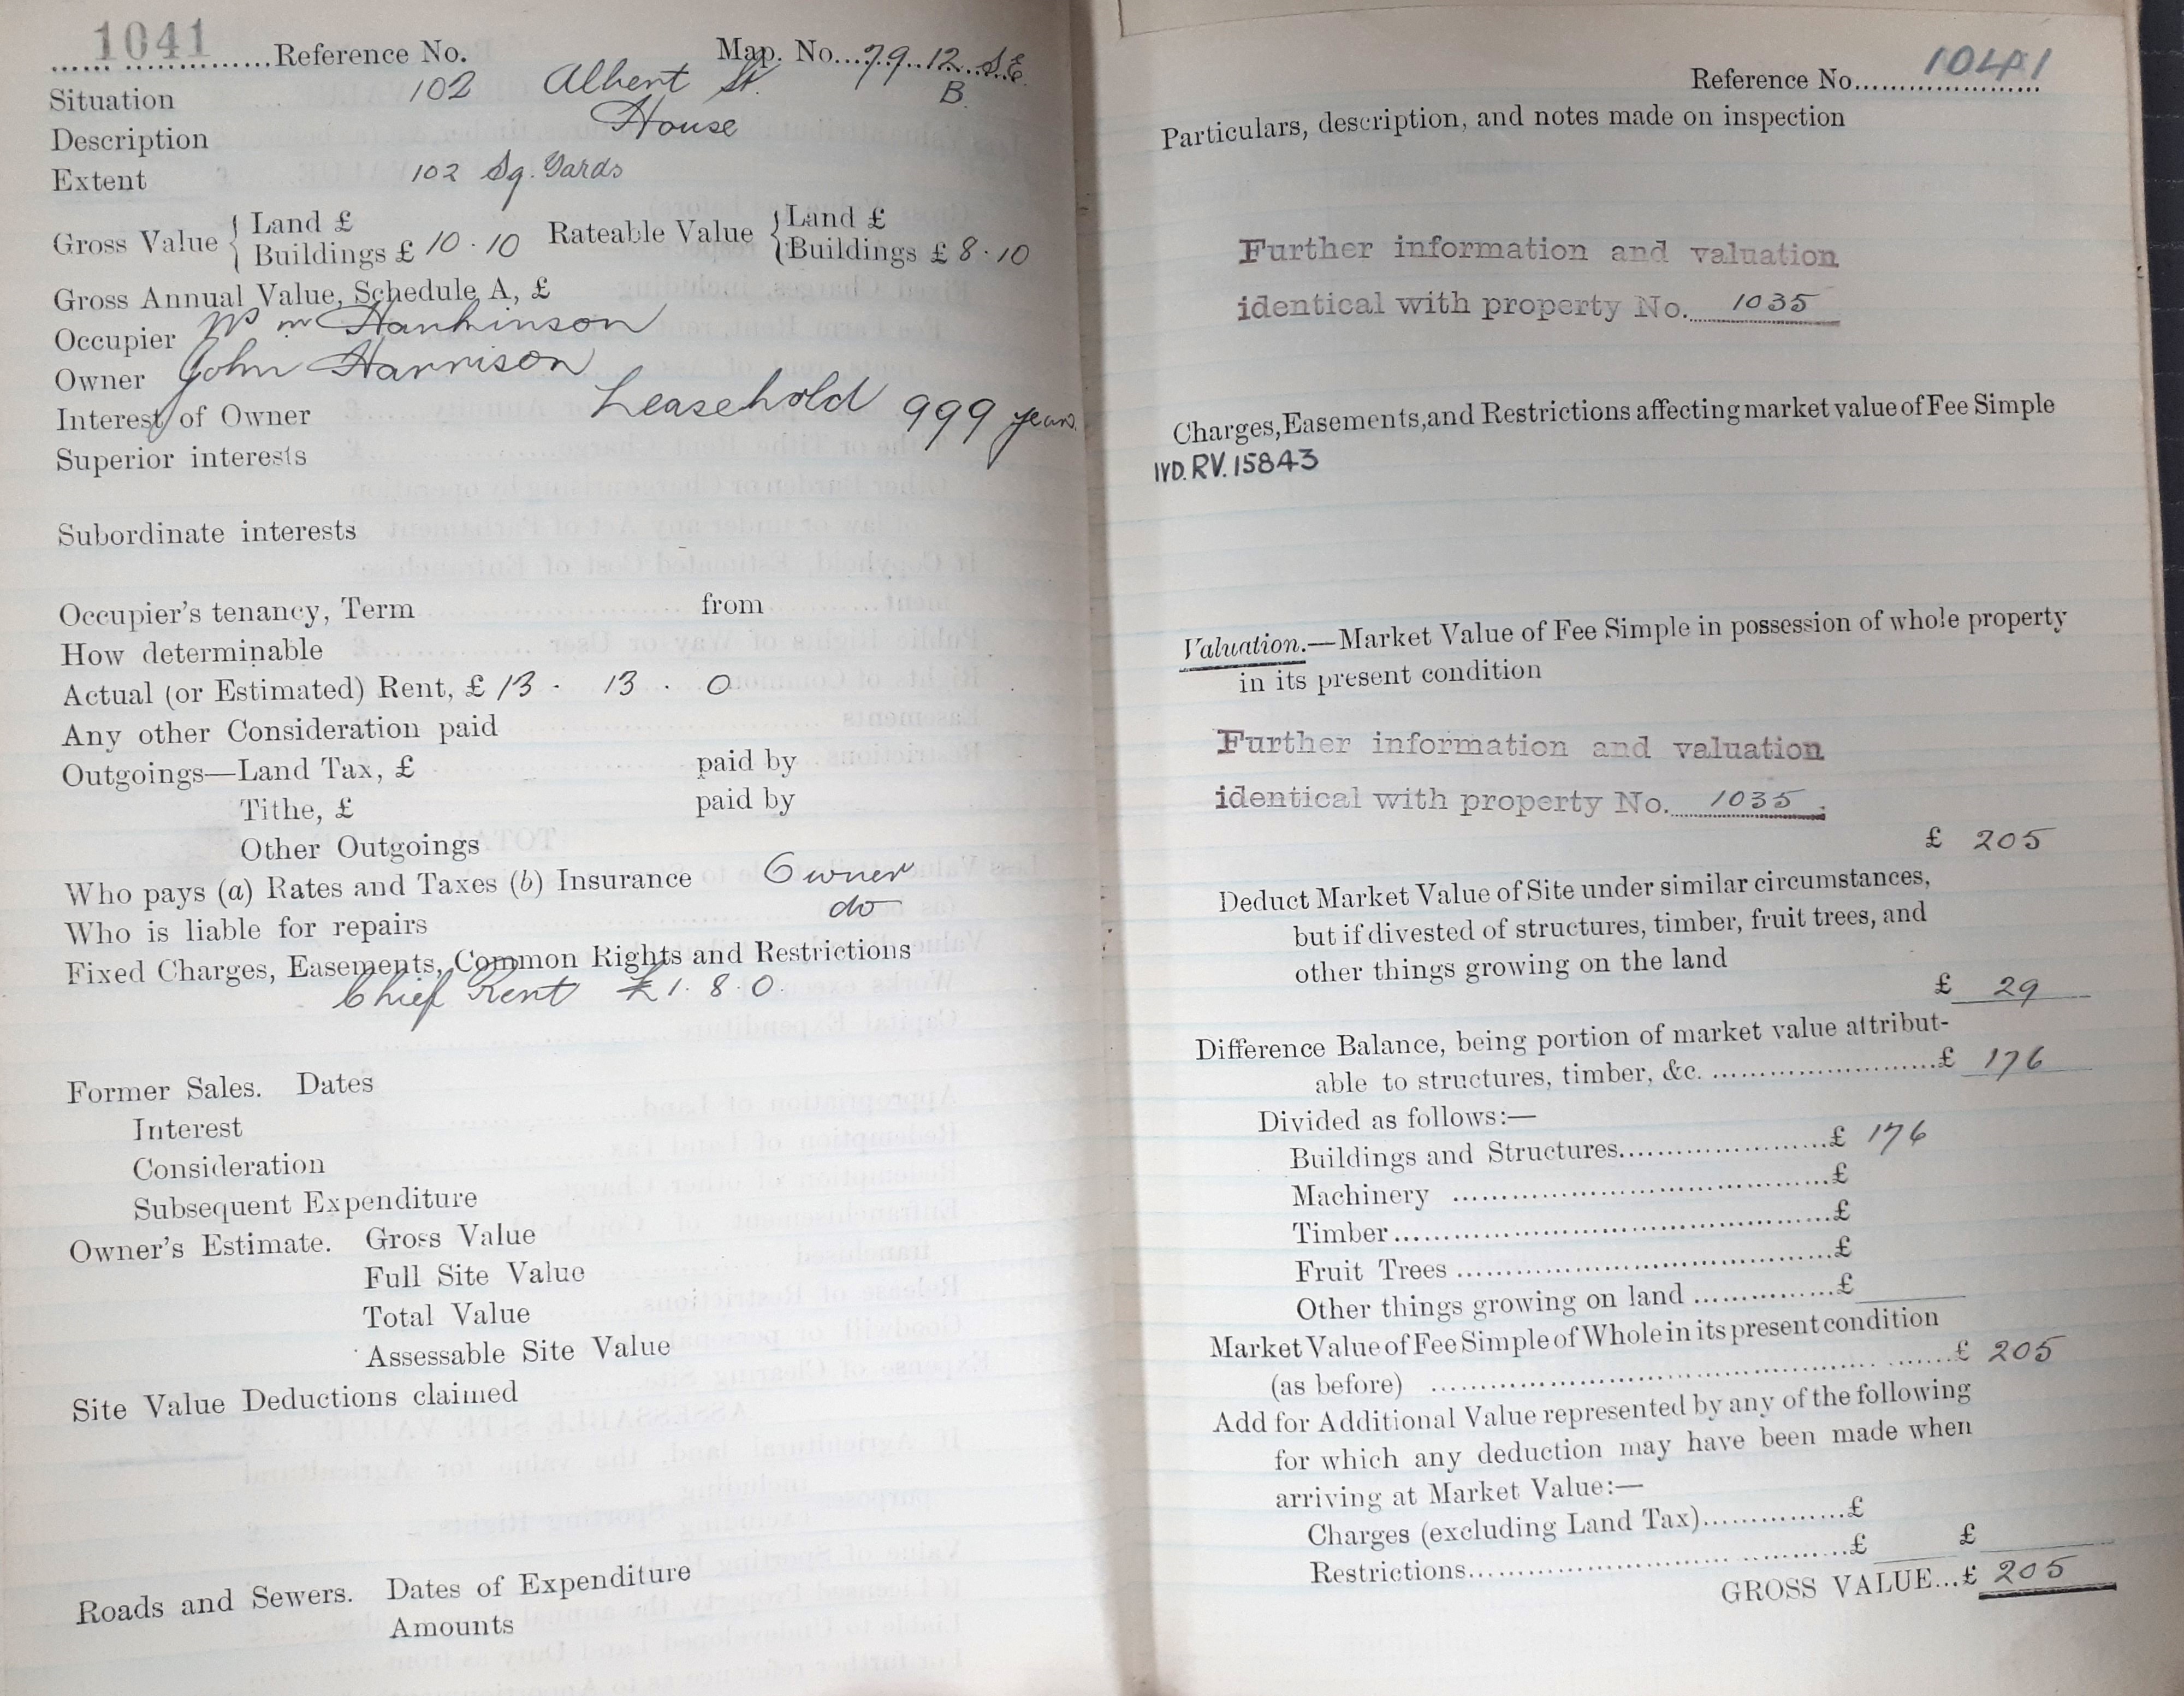 1041 Reference No. Map. No. 79.12 S.E.
Situation 102 Albert St. B.
Description House
Extent 102 Sq. Yards
Gross Value { Land £ Rateable Value { Land £
Buildings £ 10.10 Buildings £ 8.10
Gross Annual Value, Schedule A, £
Occupier Wm Hankinson
Owner John Harrison
Interest of Owner Leasehold 999 years.
Superior interests
Subordinate interests
Occupier's tenancy, Term from
How determinable
Actual (or Estimated) Rent, £ 13 . 13 . 0
Any other Consideration paid
Outgoings—Land Tax, £ paid by
Tithe, £ paid by
Other Outgoings
Who pays (a) Rates and Taxes (b) Insurance Owner
Who is liable for repairs do
Fixed Charges, Easements, Common Rights and Restrictions
Chief Rent £1.8.0.
Former Sales. Dates
Interest
Consideration
Subsequent Expenditure
Owner's Estimate. Gross Value
Full Site Value
Total Value
Assessable Site Value
Site Value Deductions claimed
Roads and Sewers. Dates of Expenditure
Amounts
Reference No. 1041
Particulars, description, and notes made on inspection
Further information and valuation
identical with property No. 1035
Charges, Easements, and Restrictions affecting market value of Fee Simple
IVD.RV.15843
Valuation.—Market Value of Fee Simple in possession of whole property
in its present condition
Further information and valuation
identical with property No. 1035.
£ 205
Deduct Market Value of Site under similar circumstances,
but if divested of structures, timber, fruit trees, and
other things growing on the land
£ 29
Difference Balance, being portion of market value attribut-
able to structures, timber, &c. £ 176
Divided as follows:—
Buildings and Structures £ 176
Machinery £
Timber £
Fruit Trees £
Other things growing on land £
Market Value of Fee Simple of Whole in its present condition
(as before) £ 205
Add for Additional Value represented by any of the following
for which any deduction may have been made when
arriving at Market Value:—
Charges (excluding Land Tax) £
Restrictions £ £
GROSS VALUE...£ 205